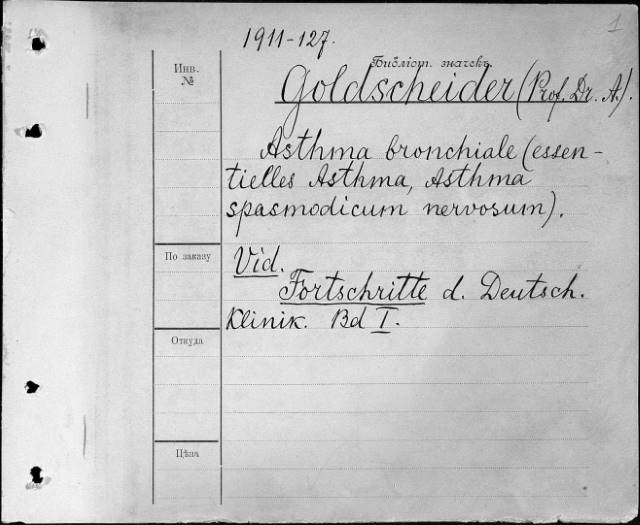 1
1911-127.
Инв.
№
Библіот. значекъ.
Goldscheider (Prof. Dr. A.).
Asthma bronchiale (essen-
tielles Asthma, Asthma
spasmodicum nervosum).
По заказу
Vid.
Fortschritte d. Deutsch.
Klinik. Bd I.
Откуда
Цѣна